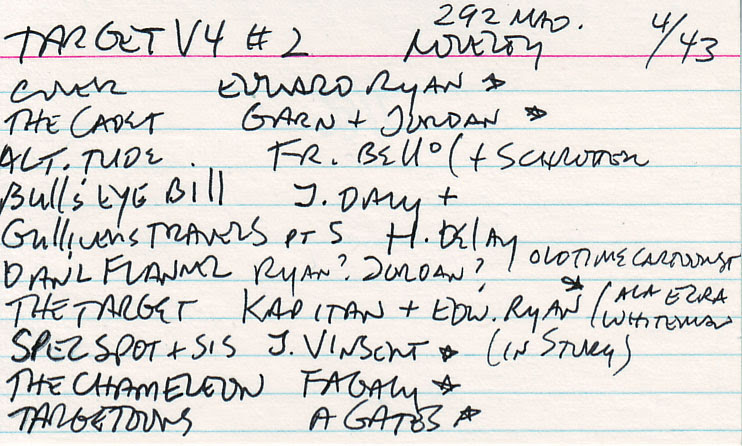 292 MAD.
TARGET V4 # 2 NOVELTY 4/43
COVER EDWARD RYAN ☆
THE CADET GARN + JORDAN ☆
ALT. TUDE . FR. BELLO (+ SCHROTTER
Bull's EYE Bill J. DALY +
GulliveRS TRAVELS PT 5 H. DELAY
DAN'L FLANNEL RYAN? JORDAN? / OLD TIME CARTOONIST
THE TARGET KAPITAN + EDW. RYAN ☆ (ALA EZRA
WHITEMAN
SPEZ SPOT + SIS J. VINSENT ☆ (IN STORY)
THE CHAMELEON FAGALY ☆
TARGETOONS A GATES ☆